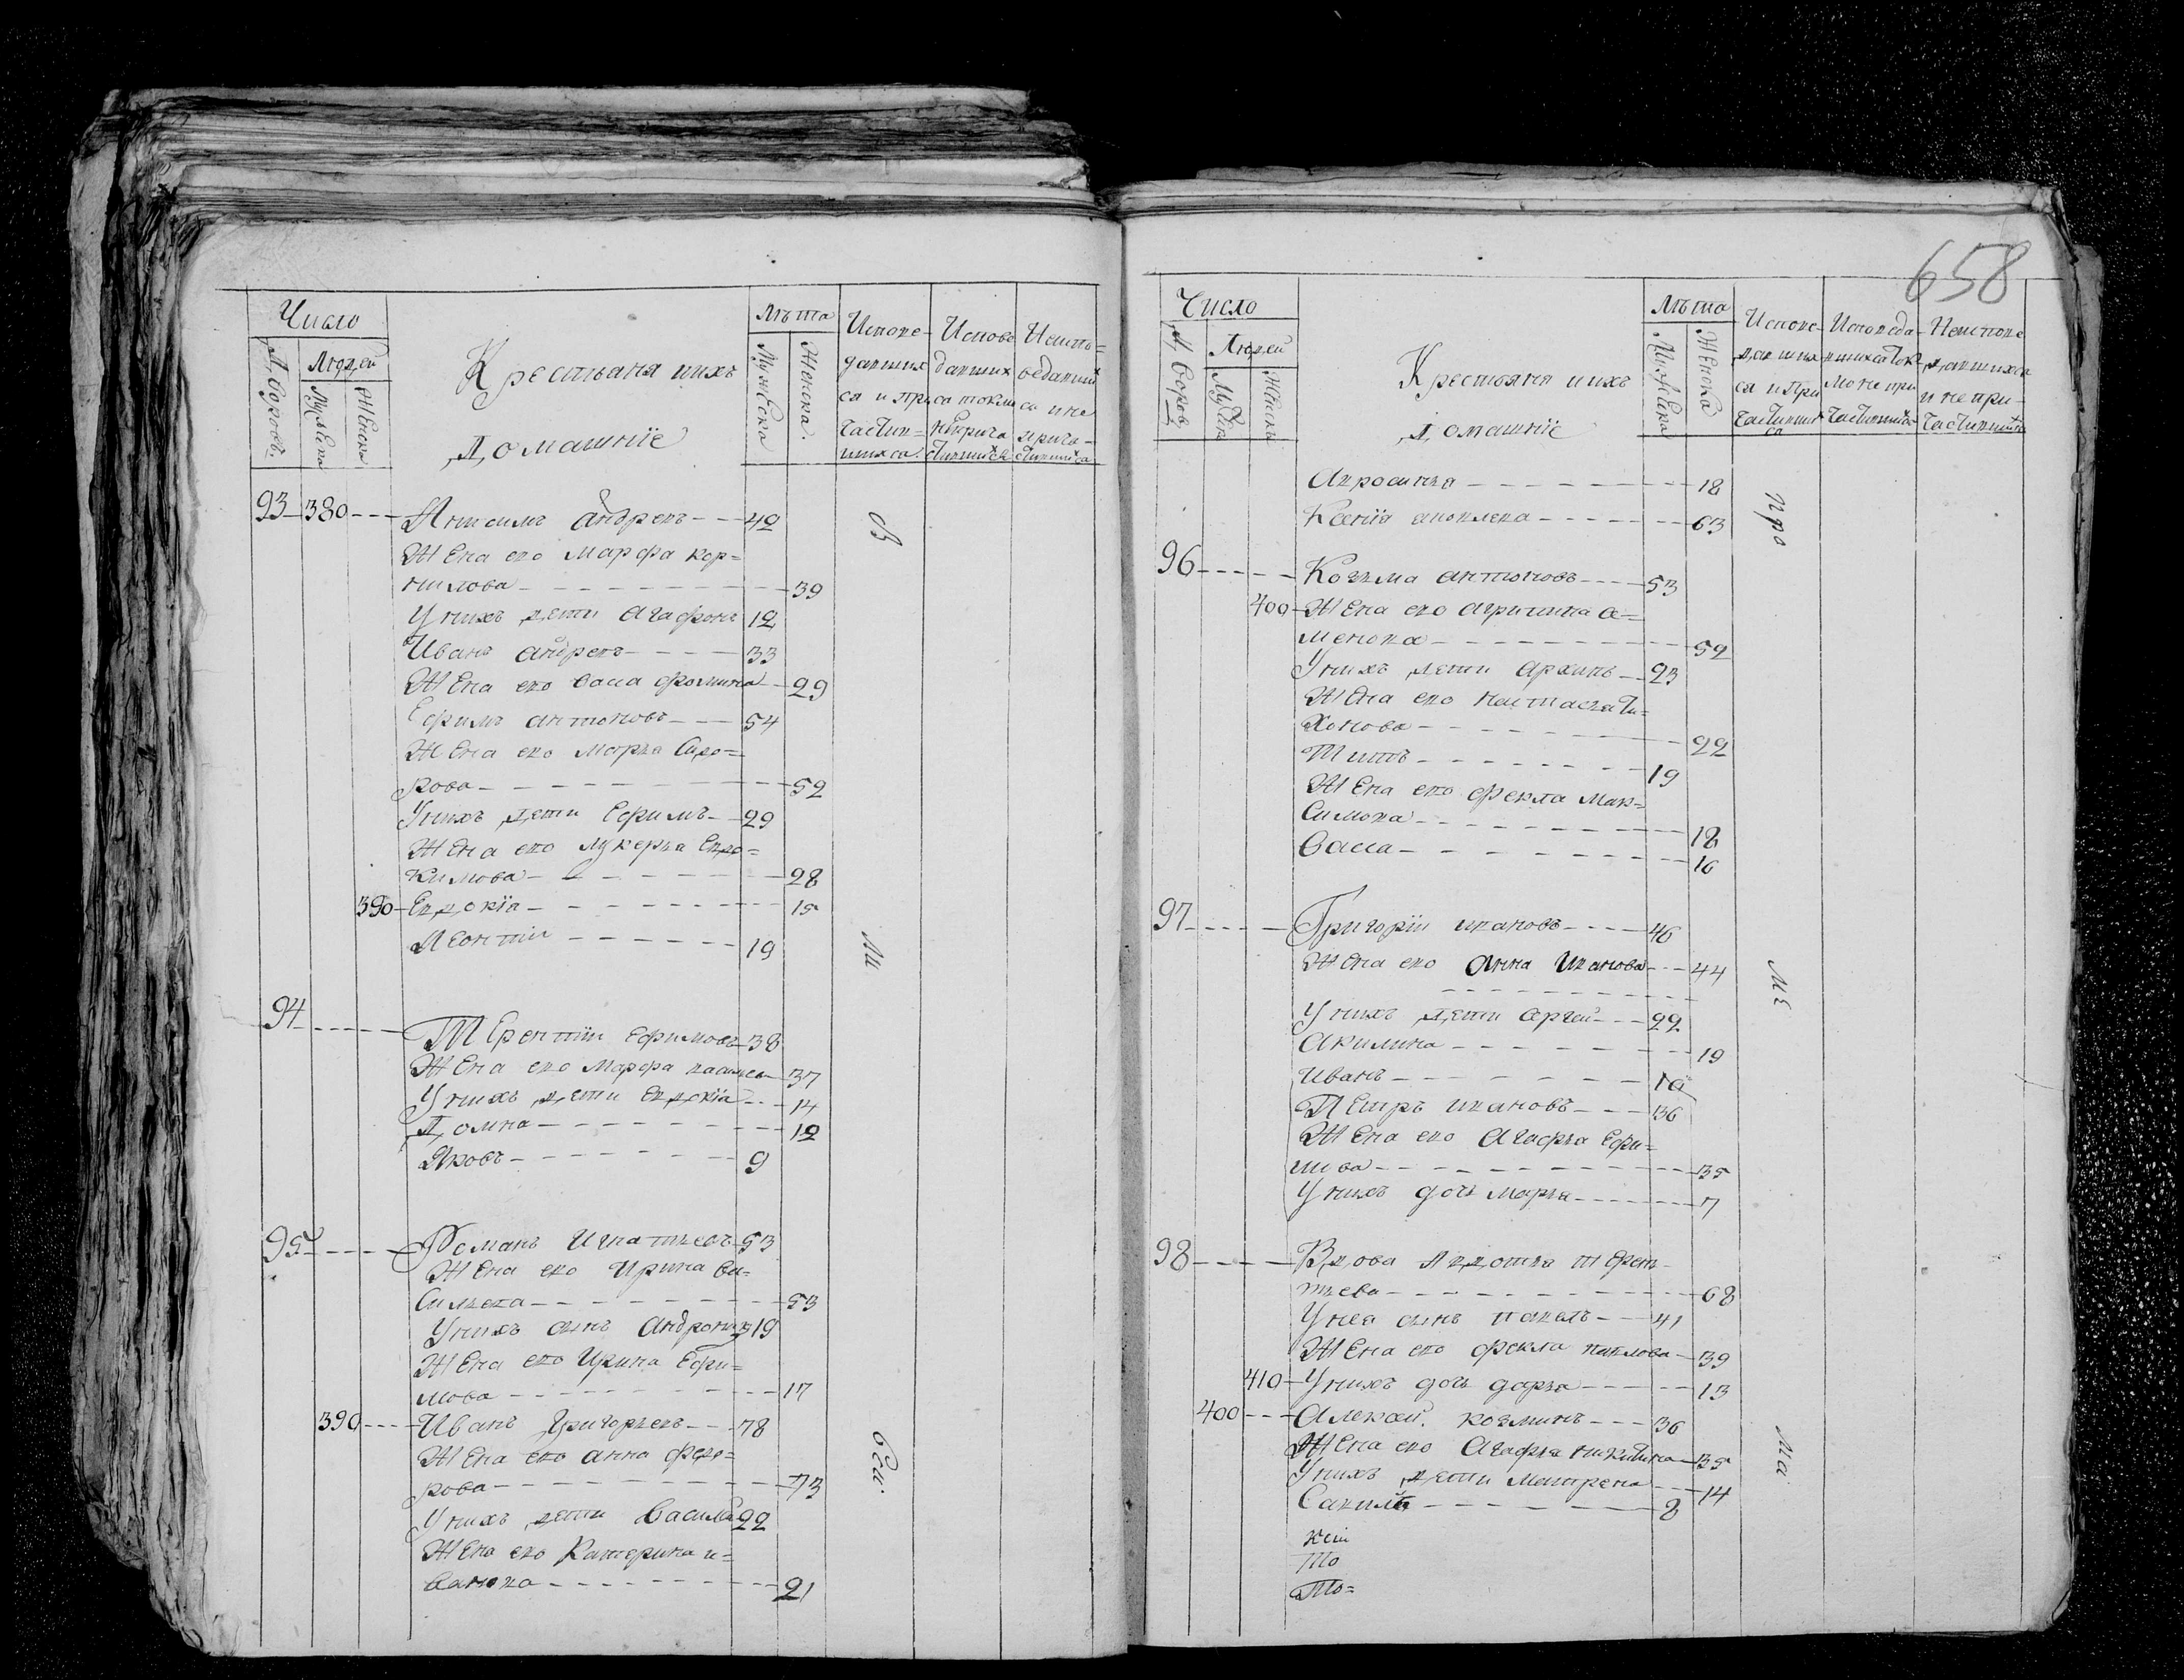 Число
Дворовъ
Людей
Мужеска
Женска
Крестьяня ихъ
домашнїе
Лѣта
Мужеска
Женска
Испове-
давших
ся и при
частив-
шихся
Испове
давших
ся токмо
неприча
стившихся
Неиспо=
ведавших
ся и не
прича-
стившихся
93 380 Анисимъ андревъ 42
Жена ево Марфа кор=
нилова 39
У нихъ дети Агафонъ 12
Иванъ андревъ 33
Жена ево васа фомина 29
Ефимъ антоновъ 54
Жена ево Марья Сидо=
рова 52
У нихъ дети Ефимъ 29
Жена ево лукерья Евдо=
кимова 28
390 Евдокїа 15
Леонтїи 19
94 Терентїи ефимовъ 38
Жена ево Марфа 37
У нихъ дети Евдокїа 14
Домна 12
Яковъ 9
95 Романъ Игнатьевъ 53
Жена ево Ирина ва=
сильева 53
У нихъ сынъ Андроникъ 19
Жена ево Ирина Ефи=
мова 17
390 Иванъ Григорьевъ 78
Жена ево анна федо=
рова 73
У нихъ дети Василеи 22
Жена ево Катерина и=
ванова 21
В
Ми
сеи.
658
Число
Дворовъ
Людей
Мужеска
Женска
Крестьяня ихъ
домашнїе
Лѣта
Мужеска
Женска
Испове-
давших
ся и при
частивших
ся
Исповеда
вшихся ток
мо не при
частившихся
Неиспове
давшихся
и не при-
частившихся
Авросинья 18
Ксенїя яковлева 63
96 Козьма антоновъ 53
400 Жена ево агрипина се=
менова 52
У нихъ дети Архипъ 23
Жена ево настасья ти=
хонова 22
Титъ 19
Жена ево фекла Мак=
симова 18
Васса 16
97 Григорїи ивановъ 46
Жена ево Анна Иванова 44
У нихъ дети сергеи 22
Акилина 19
Иванъ
Петръ ивановъ 36
Жена ево Агафья Ефи=
мова 35
У нихъ дочь марья 7
98 Вдова Авдотья терен-
тьева 68
У нея сынъ павелъ 41
Жена ево фекла павлова 39
410 У нихъ дочь дарья 13
400 Алексеи козминъ 36
Жена ево Агафья никитина 35
У нихъ дети Матрена 14
Савилъ 8
То
То=
про
Мѣ
Ма